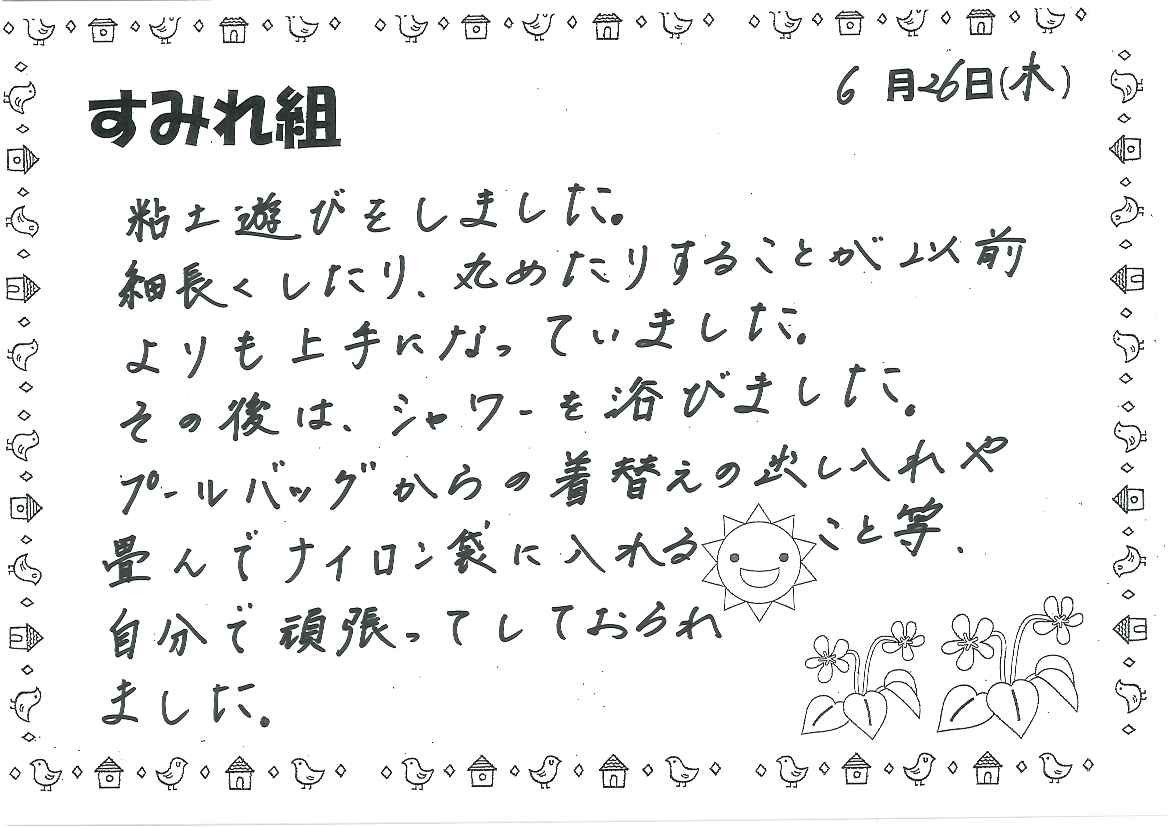 6月26日(木)
すみれ組
粘土遊びをしました。
細長くしたり、丸めたりすることが以前
よりも上手になっていました。
その後は、シャワーを浴びました。
プールバッグからの着替えの出し入れや
畳んでナイロン袋に入れること等、
自分で頑張ってしておられ
ました。